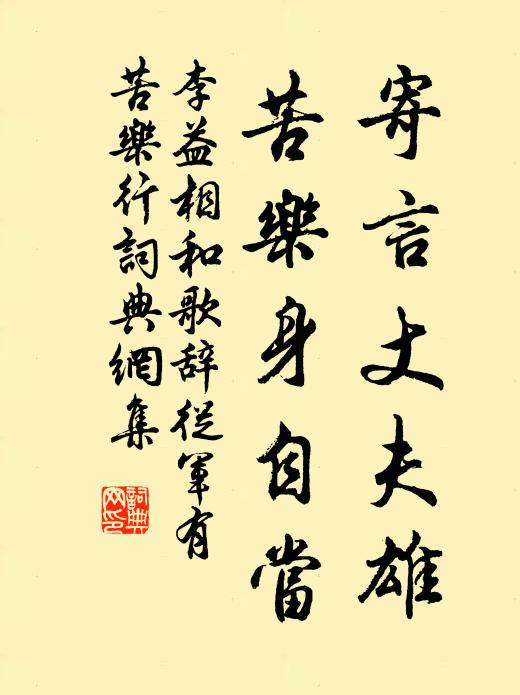 寄言丈夫雄
苦樂身自當
李益相和歌辞從軍有
苦樂行詞典網集
詞典
网印